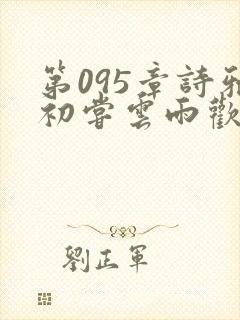 第095章詩雅
初嘗雲雨歡
劉正軍